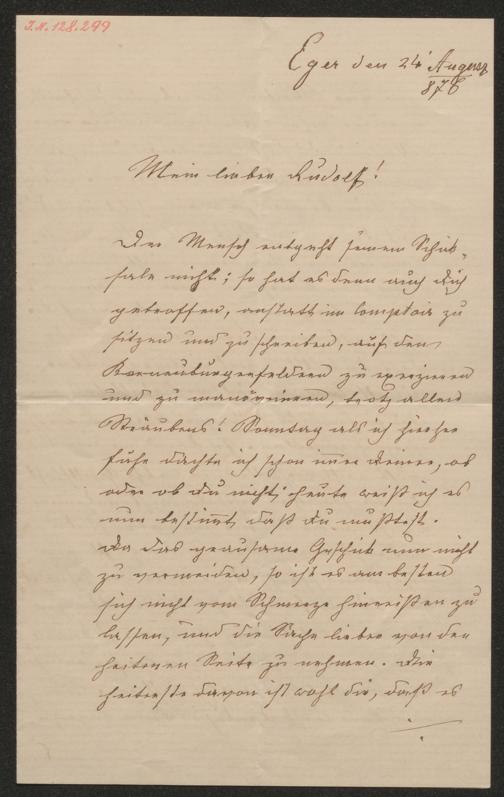 J.N. 128.299
Eger den 24 August
876
Mein lieber Rudolf!
Der Mensch entgeht seinem Schick-
sale nicht; so hat es denn auch dich
getroffen, anstatt im Comptoir zu
sitzen und zu schreiben, auf den
Korneuburgerfeldern zu exerzieren
und zu manövriren, trotz allen
Sträubens! Sonntag als ich hierher
fuhr dachte ich schon immer deiner, ob
oder ob du nicht; heute weiß ich es
nun bestimmt, daß du mußtest.
Da das grausame Geschick nun nicht
zu vermeiden, so ist es am besten
sich nicht vom Schmerze hinreißen zu
lassen, und die Sache lieber von der
heiteren Seite zu nehmen. Die
heiterste davon ist wohl die, daß es